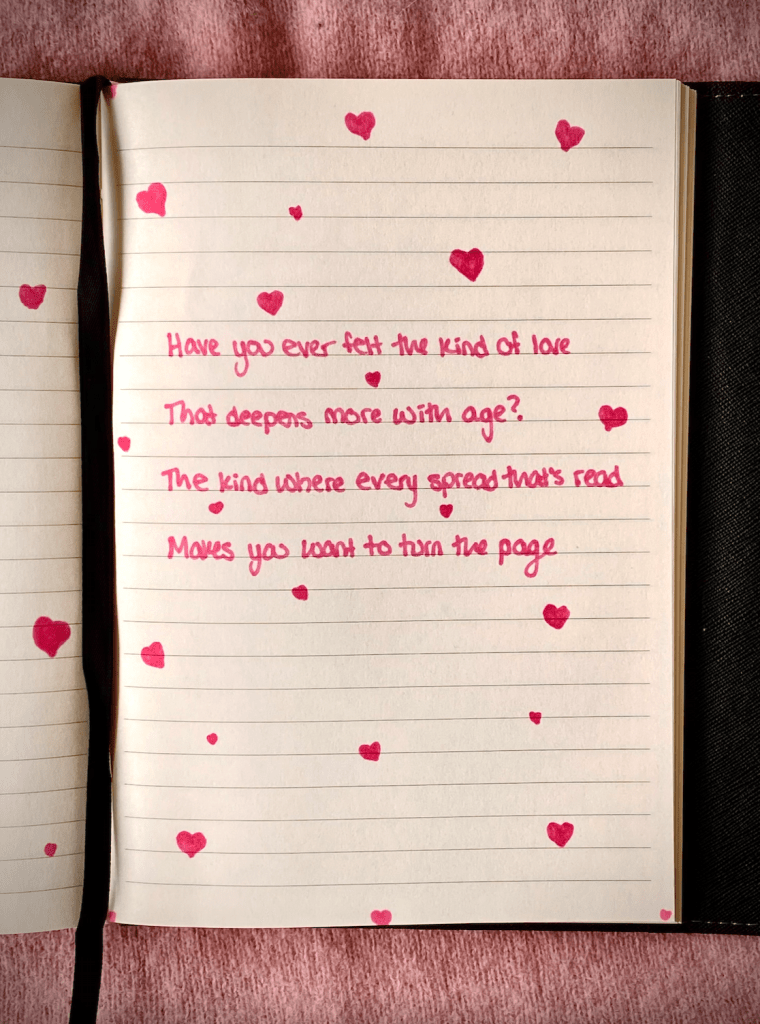 Have you ever felt the kind of love
That deepens more with age?
The kind where every spread that's read
Makes you want to turn the page